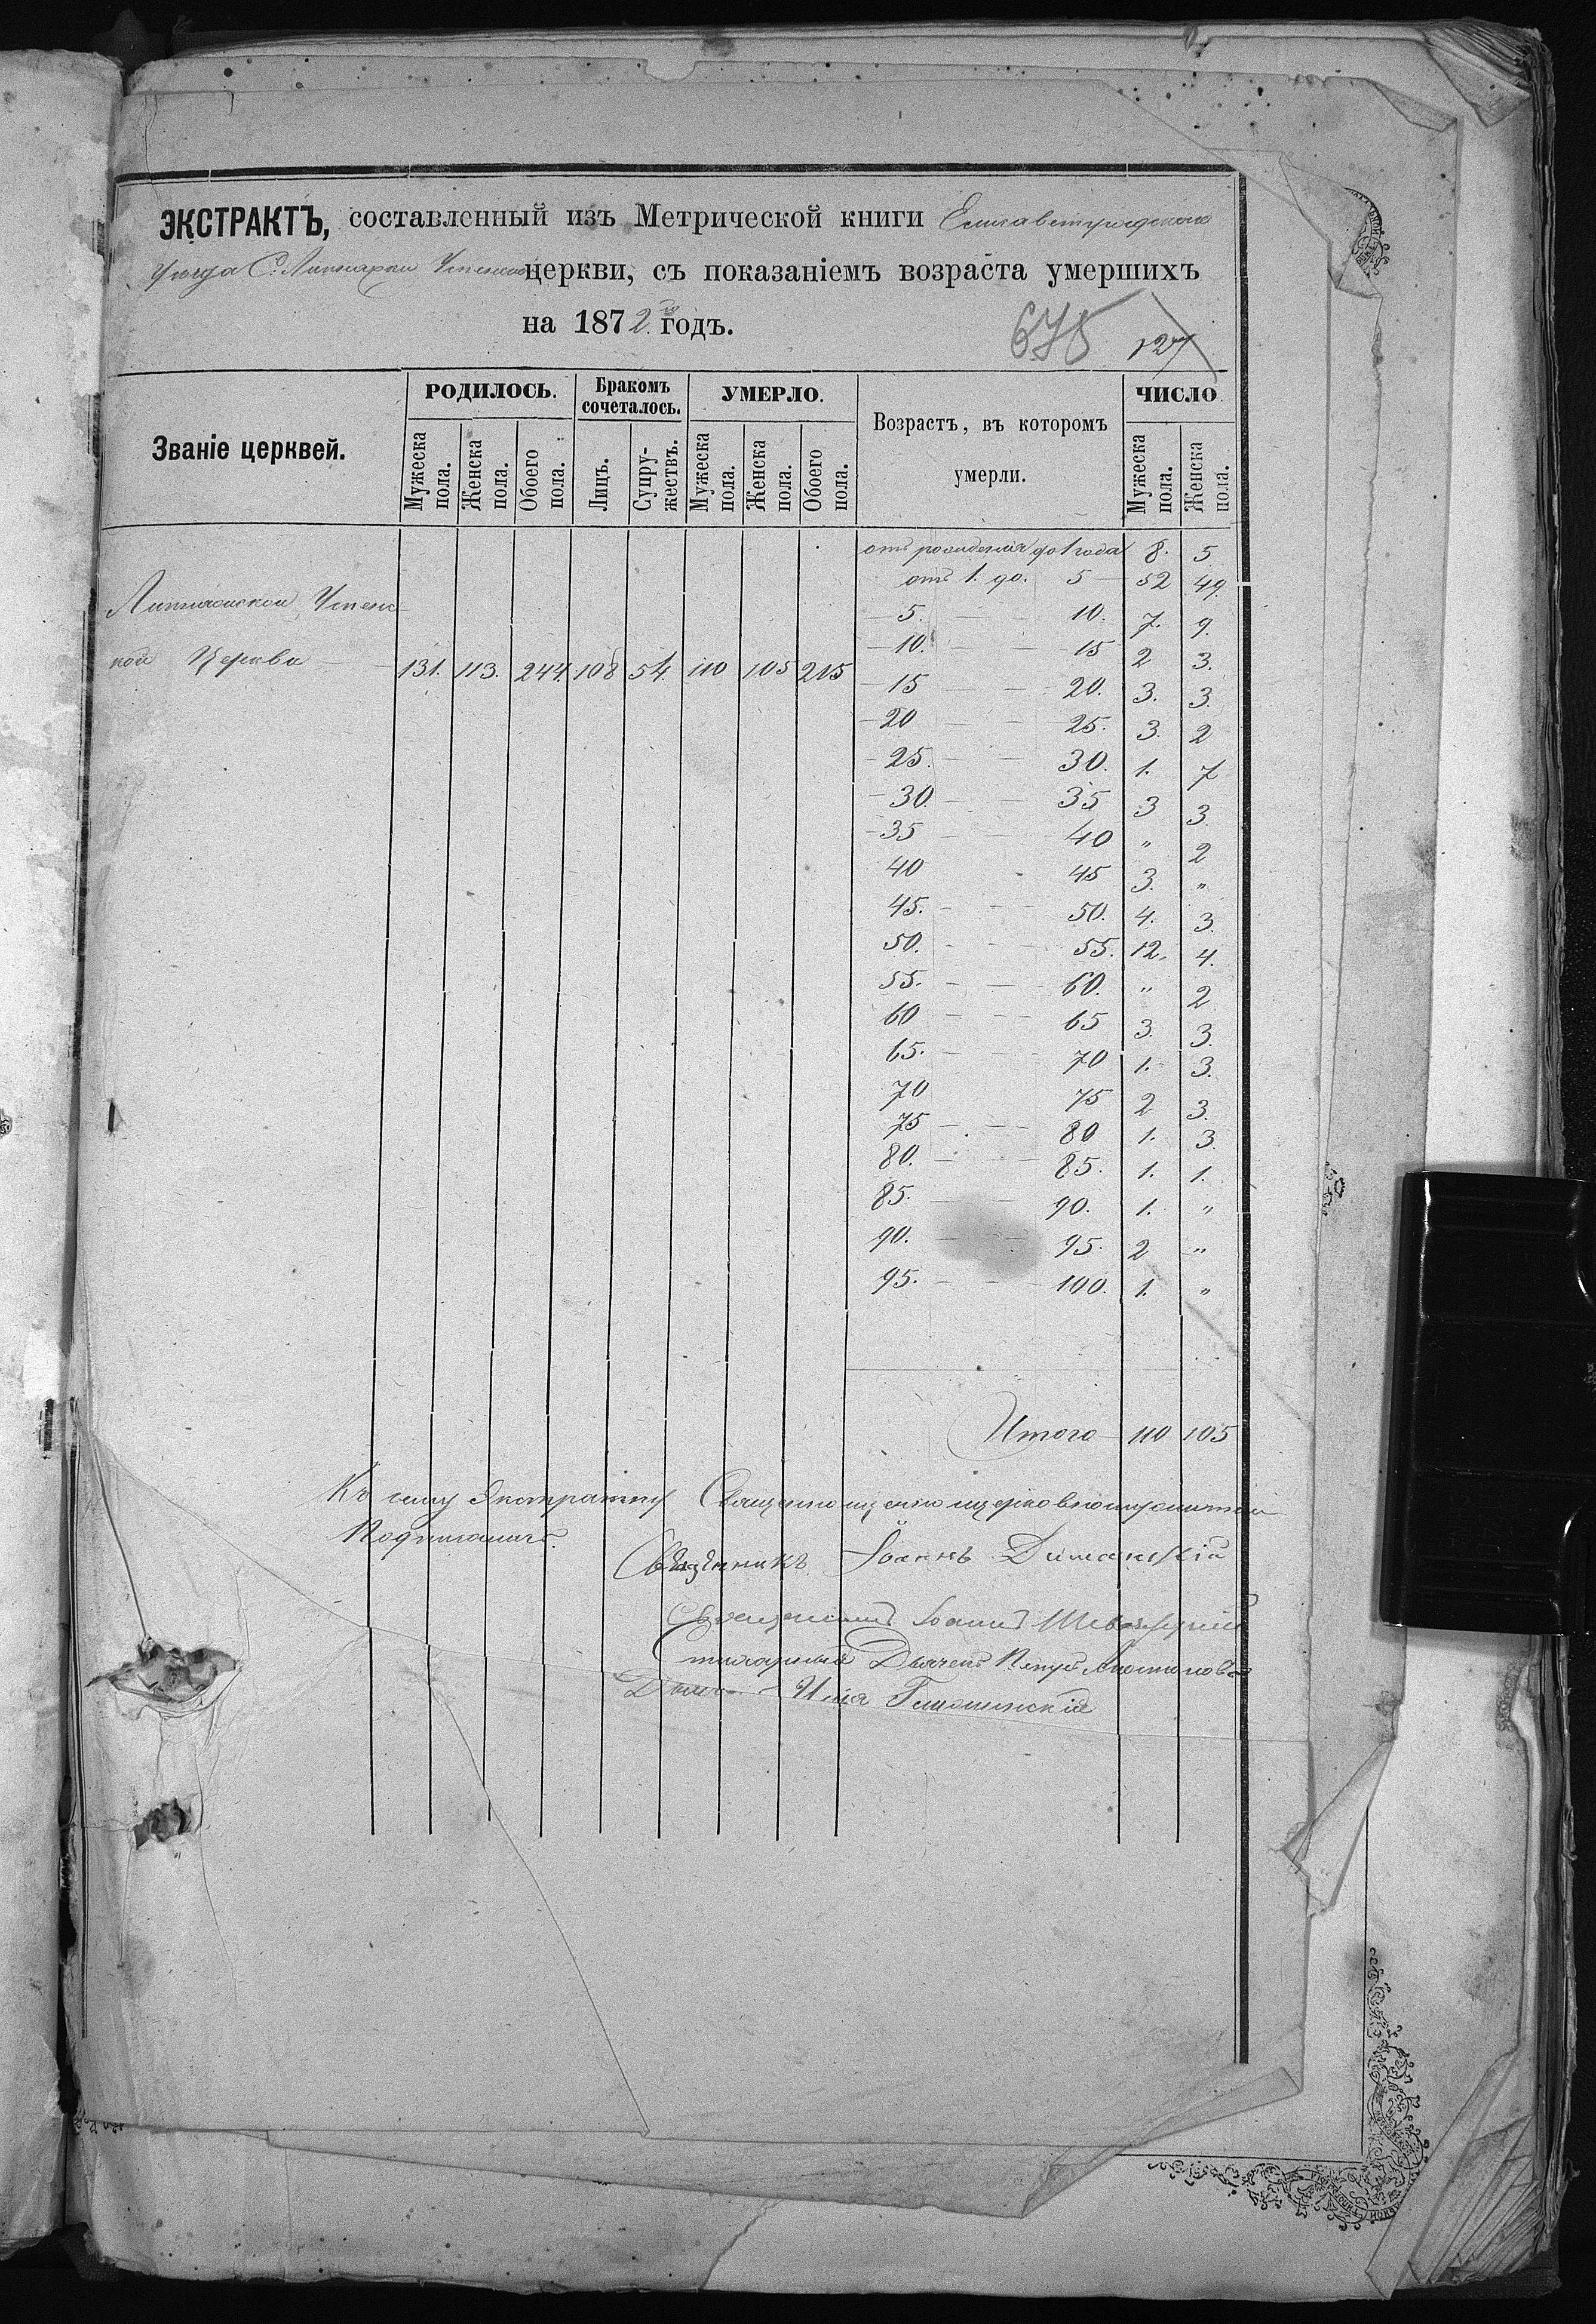 ЭКСТРАКТЪ, составленный изъ Метрической книги Елисаветградскаго
Уезда С. Липняжки Успенской церкви, съ показаніемъ возраста умершихъ
на 1872 годъ.
675 127
Званіе церквей. РОДИЛОСЬ. Бракомъ сочеталось. УМЕРЛО. Возрастъ, въ которомъ умерли. ЧИСЛО
Мужеска пола. Женска пола. Обоего пола. Лицъ. Супружествъ. Мужеска пола. Женска пола. Обоего пола. Мужеска пола. Женска пола.
отъ рожденія до 1 года 8. 5
отъ 1. до. 5 — 52 49.
Успенс
— 5. — — 10. 7. 9.
кой Церкви — — 131. 113. 244. 108 54. 110 105 215
— 10. — — 15 2 3.
— 15 — — 20. 3. 3.
— 20 — — 25. 3. 2
— 25. — — 30. 1. 7
— 30. — — 35 3 3.
— 35 — — 40 " 2
40 - 45 3. "
45. - - - 50. 4. 3.
50. - - - 55. 12. 4.
55. - - - 60. " 2
60 - - - 65 3. 3.
65. - - - 70 1. 3.
70 75 2 3.
75 - - - 80 1. 3.
80. - - - 85. 1. 1.
85. - - 90. 1. "
90. - - 95. 2 "
95. - - 100. 1. "
Итого — 110 105
Къ сему Экстракту
Подписались.
Священникъ Іоаннъ
Священникъ Іоаннъ
Дьячекъ Петръ
Илія